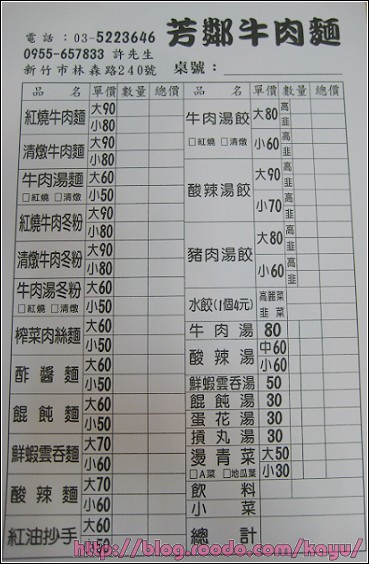 電話：03-5223646
0955-657833 許先生
新竹市林森路240號
芳鄰牛肉麵
桌號：
品名 單價 數量 總價
紅燒牛肉麵 大90 小80
清燉牛肉麵 大90 小80
牛肉湯麵 大60 小50
□紅燒 □清燉
紅燒牛肉冬粉 大90 小80
清燉牛肉冬粉 大90 小80
牛肉湯冬粉 大60 小50
□紅燒 □清燉
榨菜肉絲麵 大60 小50
酢醬麵 大60 小50
餛飩麵 大60 小50
鮮蝦雲吞麵 大70 小60
酸辣麵 大70 小60
紅油抄手 大60 小50
品名 單價 數量 總價
牛肉湯餃 大80 高 韭 小60 高 韭
□紅燒 □清燉
酸辣湯餃 大90 高 韭 小70 高 韭
豬肉湯餃 大80 高 韭 小60 高 韭
水餃(1個4元) 高麗菜 韭菜
牛肉湯 80
酸辣湯 中60 小30
鮮蝦雲吞湯 50
餛飩湯 30
蛋花湯 30
摃丸湯 30
燙青菜 大50 小30
□A菜 □地瓜葉
飲料
小菜
總計
http://blog.roodo.com/kayu/